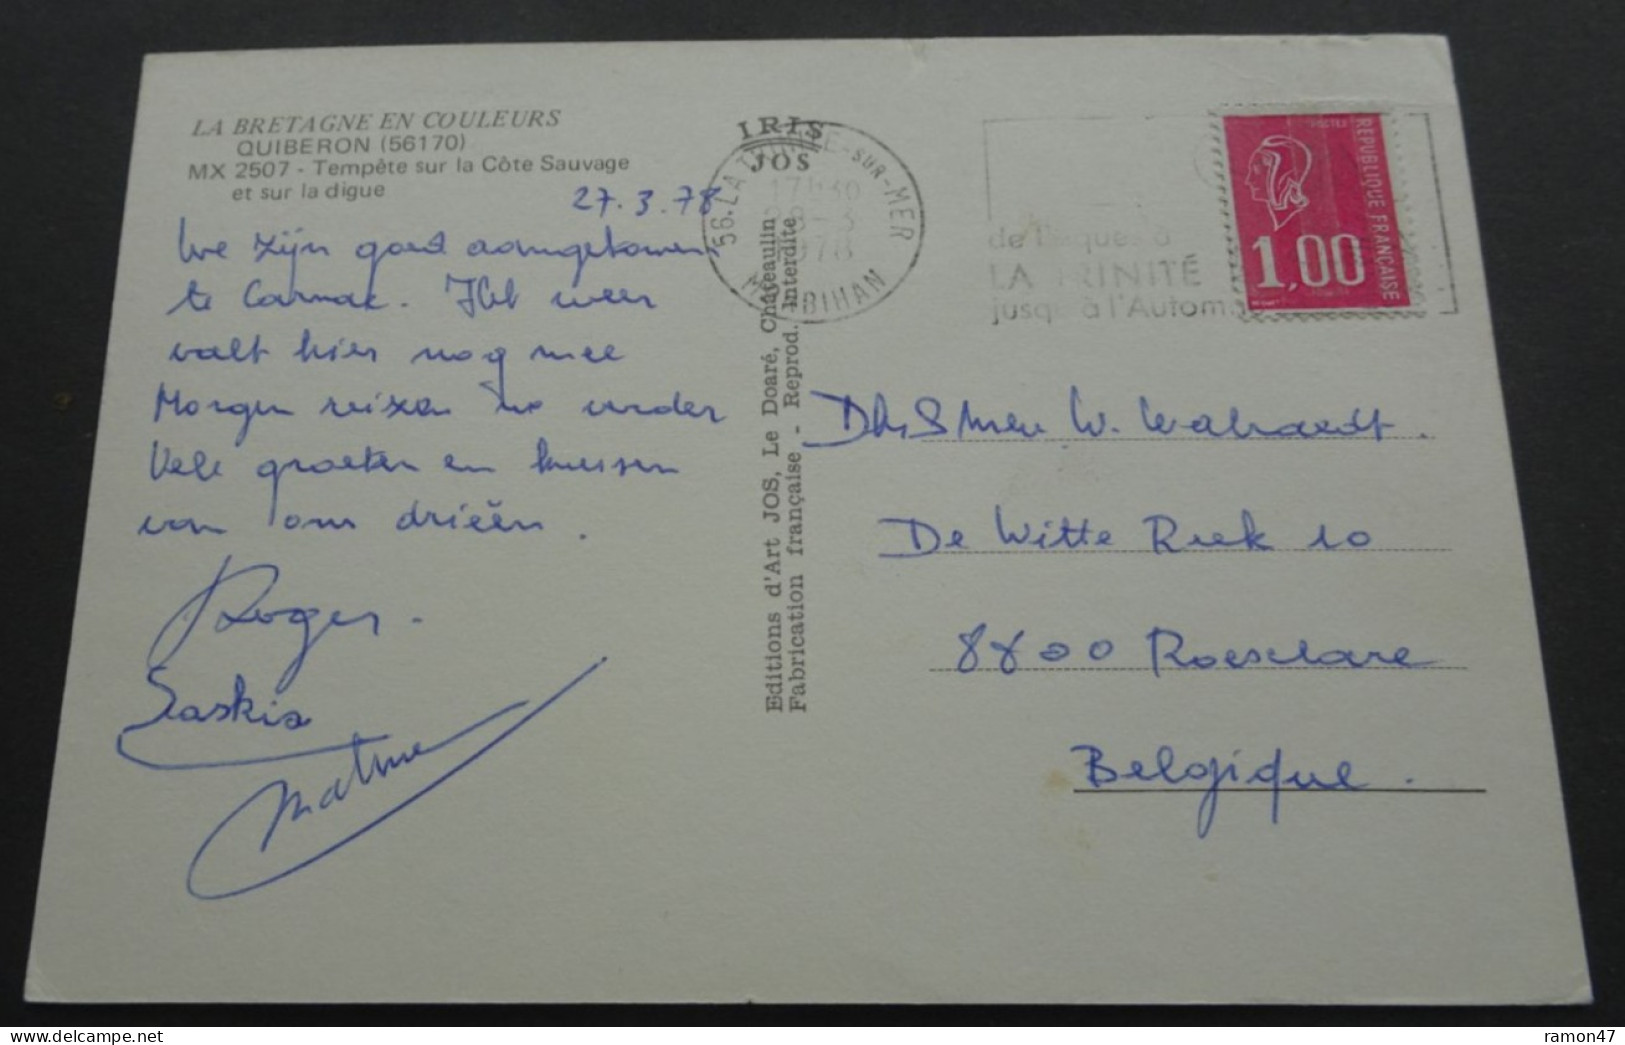 LA BRETAGNE EN COULEURS
QUIBERON (56170)
MX 2507 - Tempête sur la Côte Sauvage
et sur la digue
27.3.78
We zijn goed aangekomen
te Carnac. Het weer
valt hier nog mee
Morgen reizen we verder
Vele groeten en kussen
van ons drieën.
Roger.
Saskia
IRIS
JOS
Editions d'Art JOS, Le Doaré, Châteaulin
Fabrication française - Reprod. Interdite
56. LA TRINITÉ-SUR-MER
17H30
1978
MORBIHAN
de Pâques à
LA TRINITÉ
jusqu'à l'Autom
POSTES
REPUBLIQUE FRANÇAISE
1,00
De Witte Reek 10
8800 Roeselare
Belgique.
ramon47